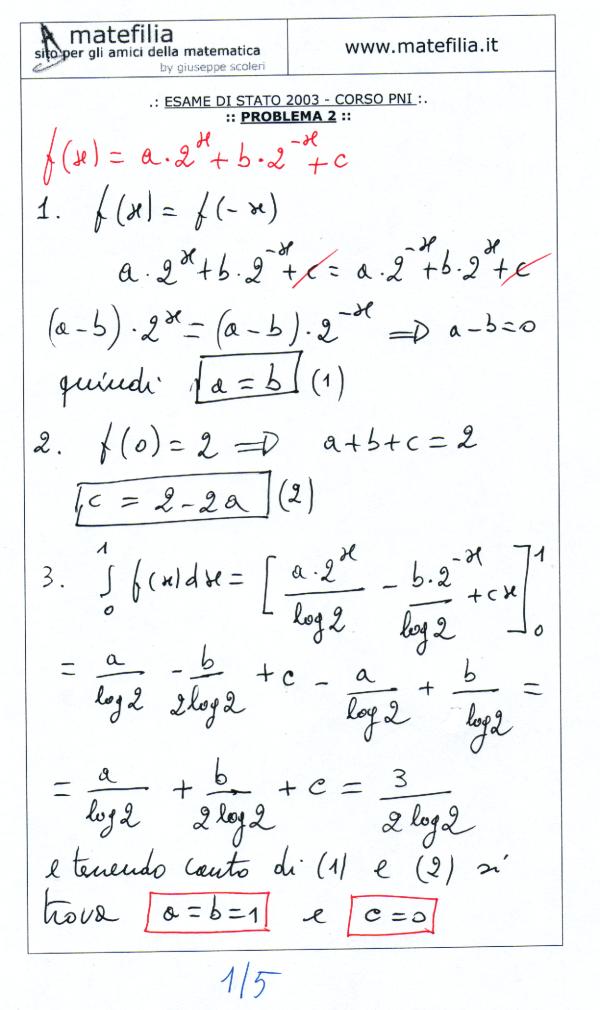 matefilia
sito per gli amici della matematica
by giuseppe scoleri
www.matefilia.it
.: ESAME DI STATO 2003 - CORSO PNI :.
:: PROBLEMA 2 ::
f(x) = a·2^x + b·2^-x + c
1. f(x) = f(-x)
a·2^x + b·2^-x + c = a·2^-x + b·2^x + c
(a-b)·2^x = (a-b)·2^-x ⇒ a-b=0
quindi a = b (1)
2. f(0) = 2 ⇒ a+b+c = 2
c = 2-2a (2)
3. ∫₀¹ f(x)dx = [a·2^x/log2 - b·2^-x/log2 + cx]₀¹
= a/log2 - b/2log2 + c - a/log2 + b/log2 =
= a/log2 + b/2log2 + c = 3/2log2
e tenendo conto di (1) e (2) si
trova a=b=1 e c=0
1/5